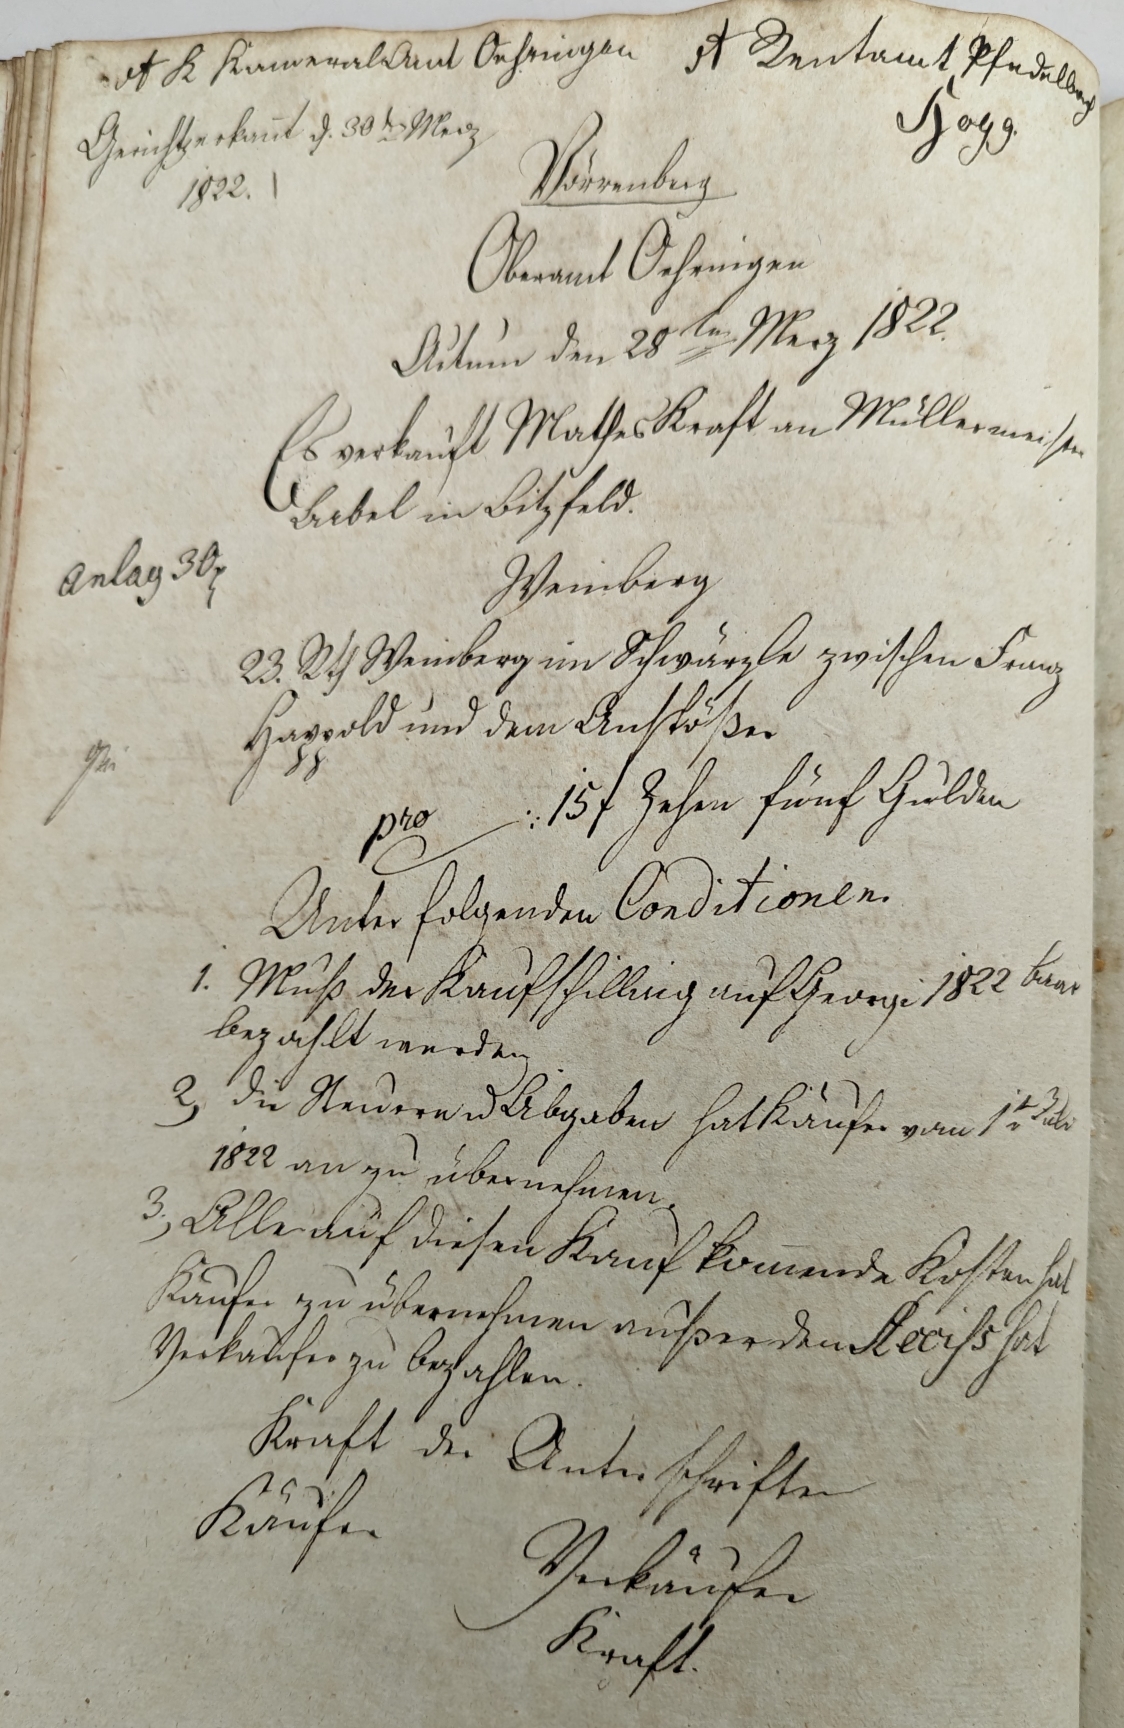 K KameralAmt Oehringen
Rentamt Pfedelbach
Hogg.
Gerichtserkannt d. 30ten Merz
1822.
Vörrenberg
Oberamt Oehringen
Actum den 28ten Merz 1822.
Es verkauft Mathes Kraft an Müllermeister
in Bitzfeld.
anlag 30
Weinberg
23. Rth Weinberg im Schwärzle zwischen Franz
Happold und dem Anstößer
pro 15 f Zehen fünf Gulden
Unter folgenden Conditionen.
1. Muß der Kaufschilling auf Georgi 1822 baar
bezahlt werden
2, die Steuern u Abgaben hat Käufer vom 1t Juli
1822 an zu übernehmen.
3, Alle auf diesen Kauf kom̄ende Kosten hat
Käufer zu übernehmen außer den Accihs hat
Verkäufer zu bezahlen.
Kraft der Unterschriften
Käufer
Verkäufer
Kraft.